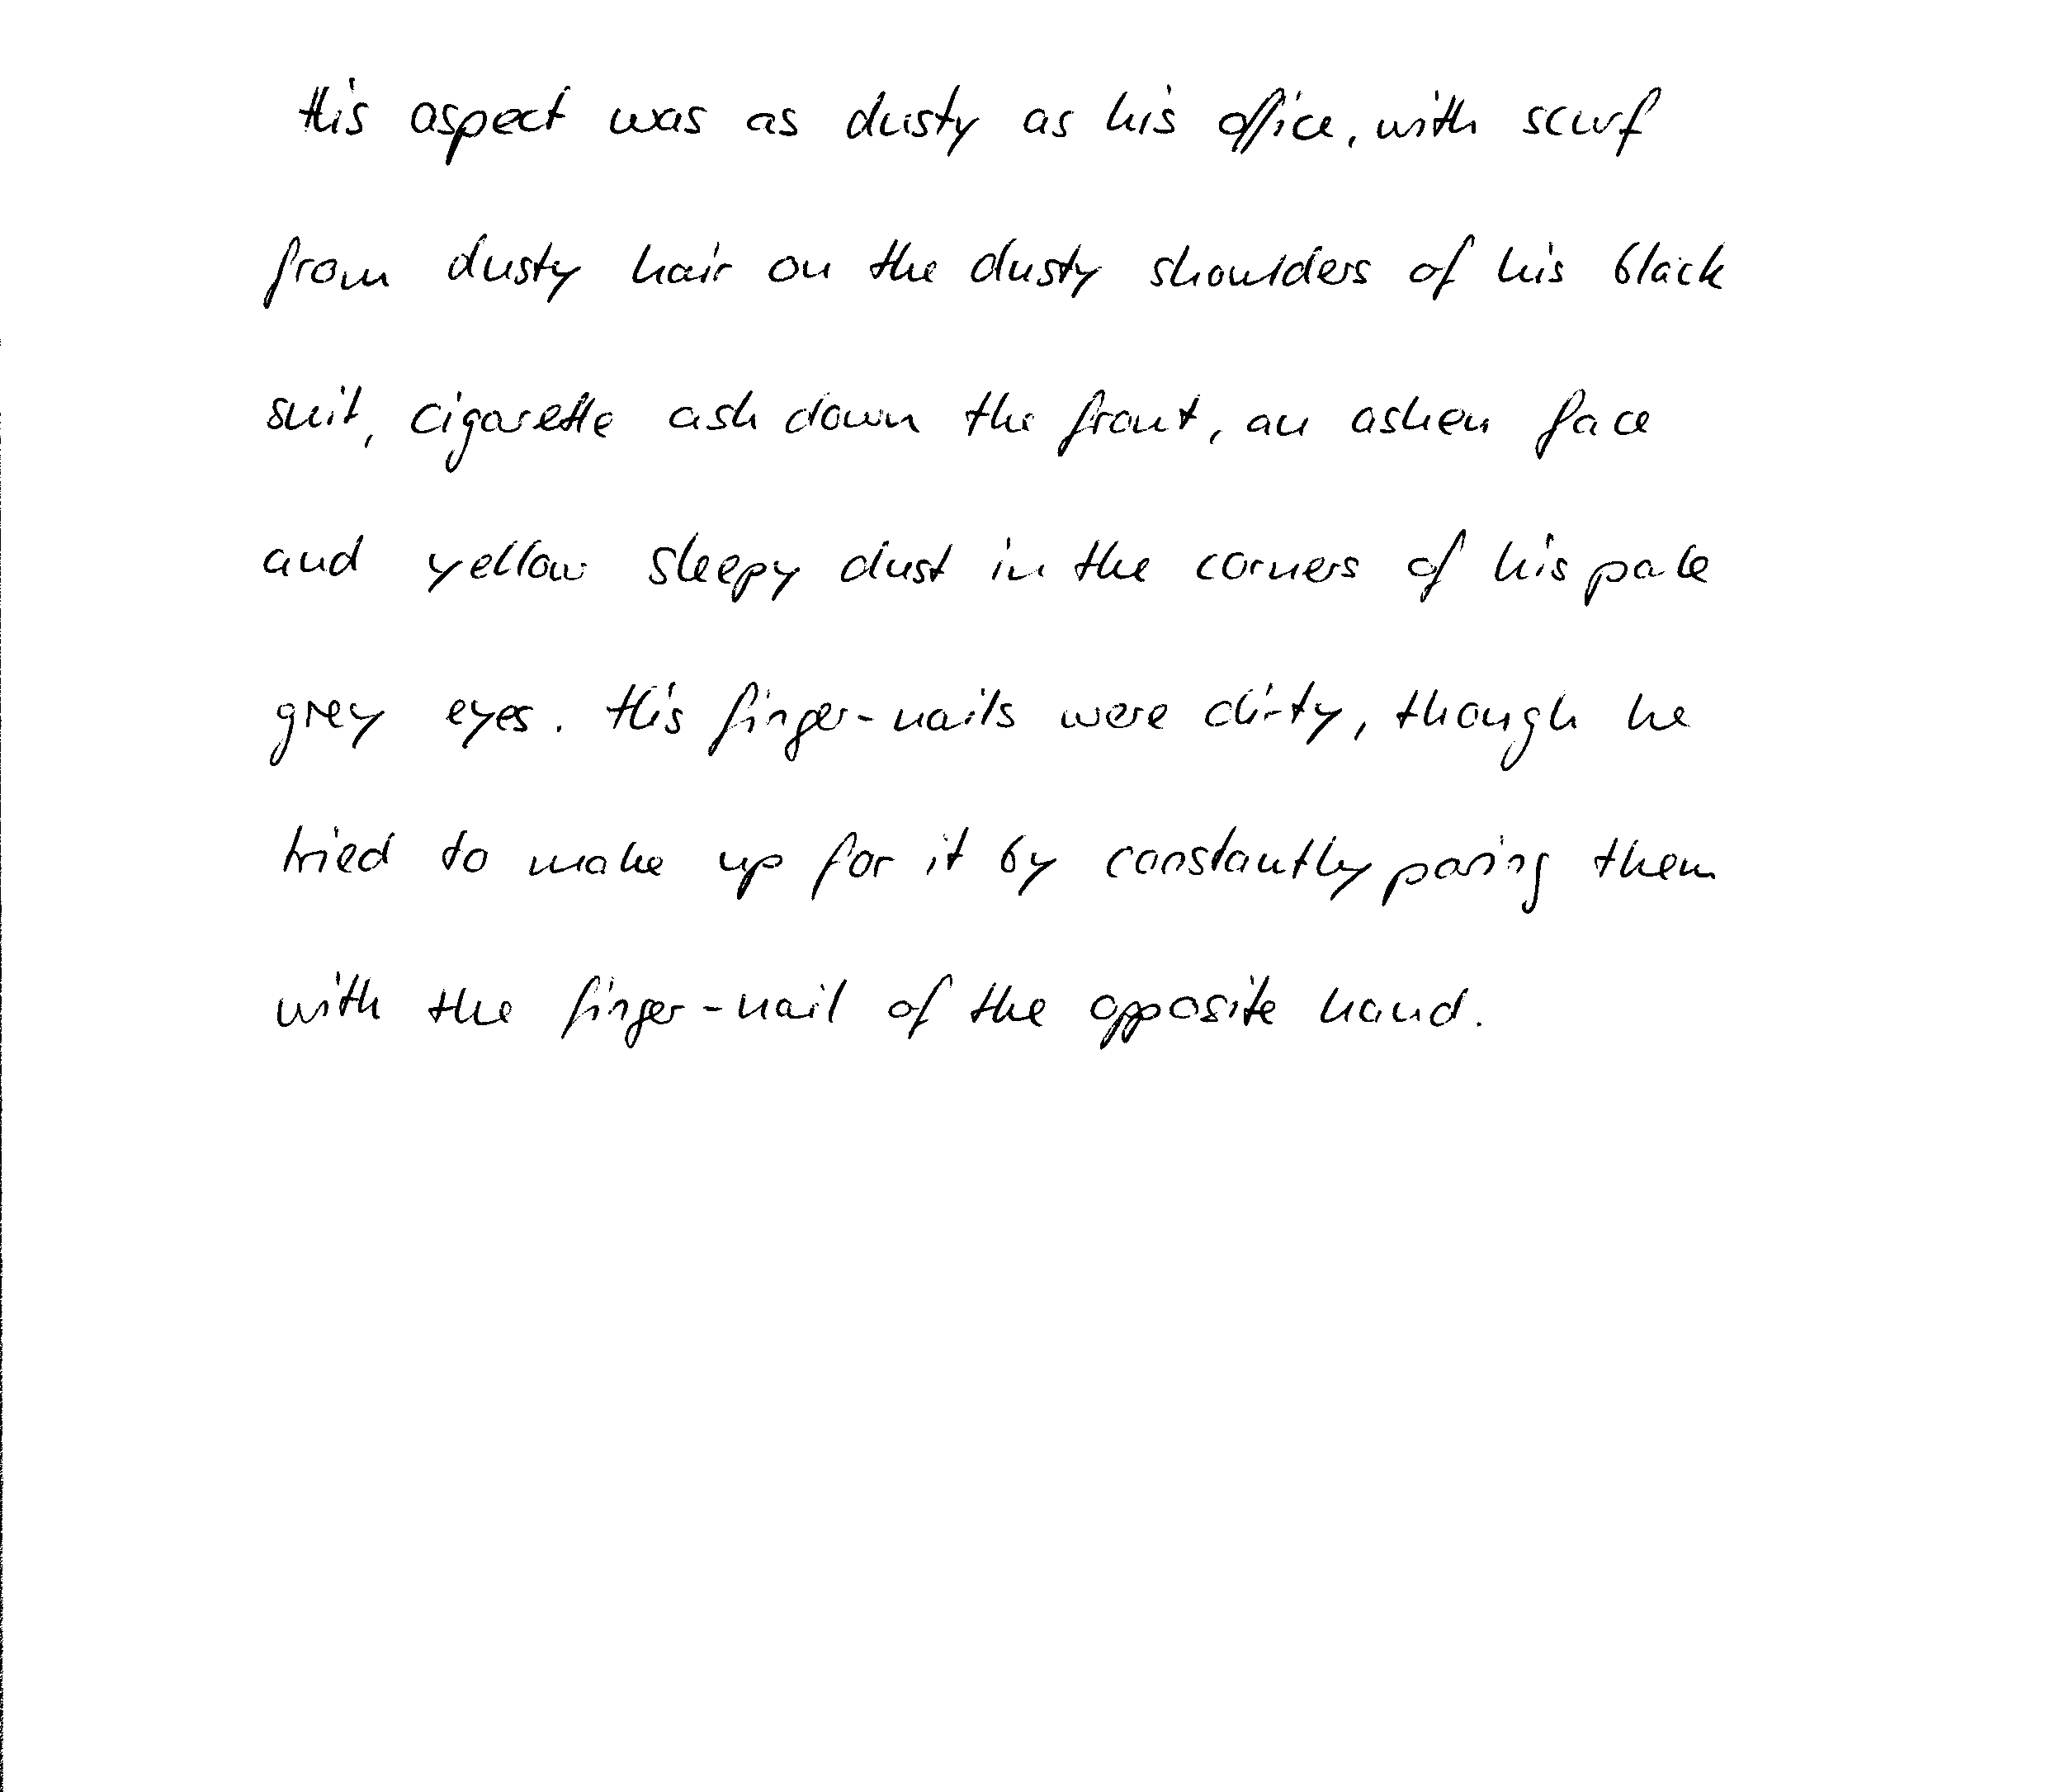 His aspect was as dusty as his office, with scurf
from dusty hair on the dusty shoulders of his black
suit, cigarette ash down the front, an ashen face
and yellow sleepy dust in the corners of his pale
grey eyes. His finger-nails were dirty, though he
tried to make up for it by constantly paring them
with the finger-nail of the opposite hand.